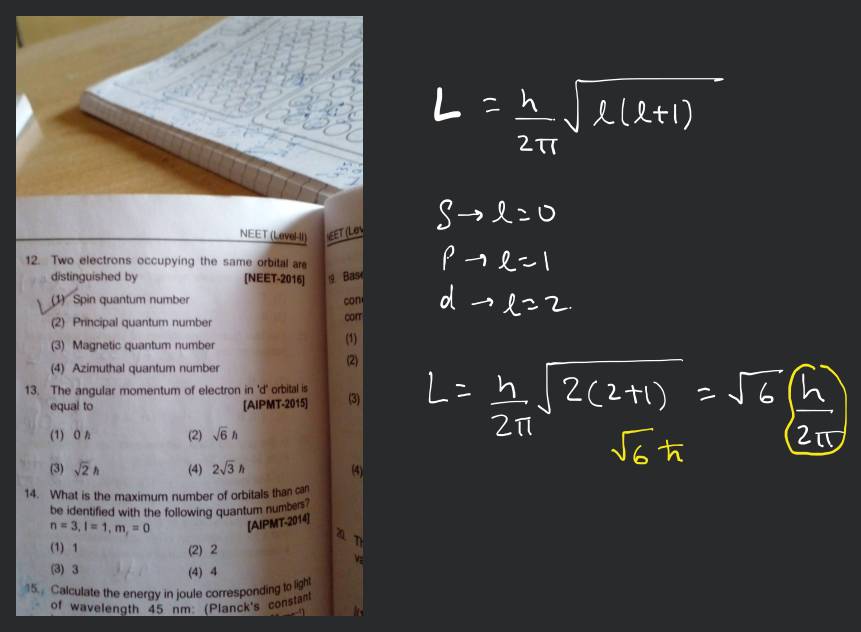 NEET (Level-II)
12. Two electrons occupying the same orbital are
distinguished by [NEET-2016]
(1) Spin quantum number
(2) Principal quantum number
(3) Magnetic quantum number
(4) Azimuthal quantum number
13. The angular momentum of electron in 'd' orbital is
equal to [AIPMT-2015]
(1) 0 ℏ (2) √6 ℏ
(3) √2 ℏ (4) 2√3 ℏ
14. What is the maximum number of orbitals than can
be identified with the following quantum numbers?
n = 3, l = 1, mₗ = 0 [AIPMT-2014]
(1) 1 (2) 2
(3) 3 (4) 4
15. Calculate the energy in joule corresponding to light
of wavelength 45 nm: (Planck's constant
NEET (Lev
19. Base
con
com
(1)
(2)
(3)
(4)
20. Th
va
L = h/2π √l(l+1)
S → l=0
P → l=1
d → l=2.
L = h/2π √2(2+1) = √6 h/2π
√6 ħ